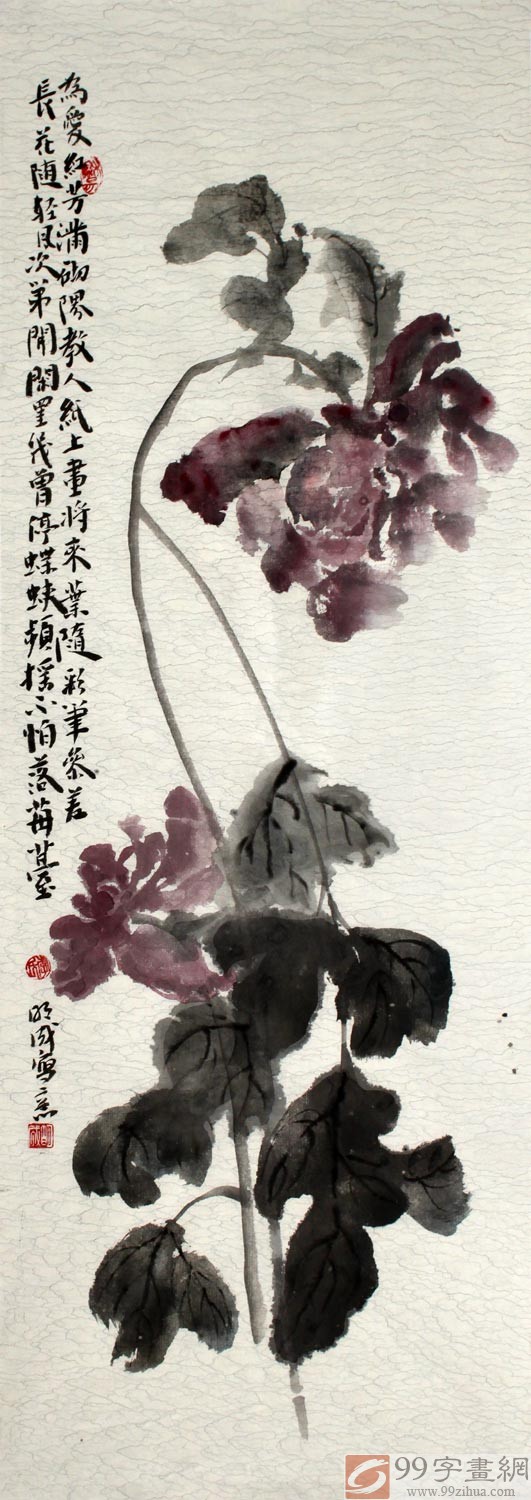 為愛紅芳滿砌階教人紙上畫將來葉隨彩筆參差
長花随轻風次第開閑里幾曾停蝶蛺頻摇不怕落莓苔
明成寫
99字畫網
www.99zihua.com